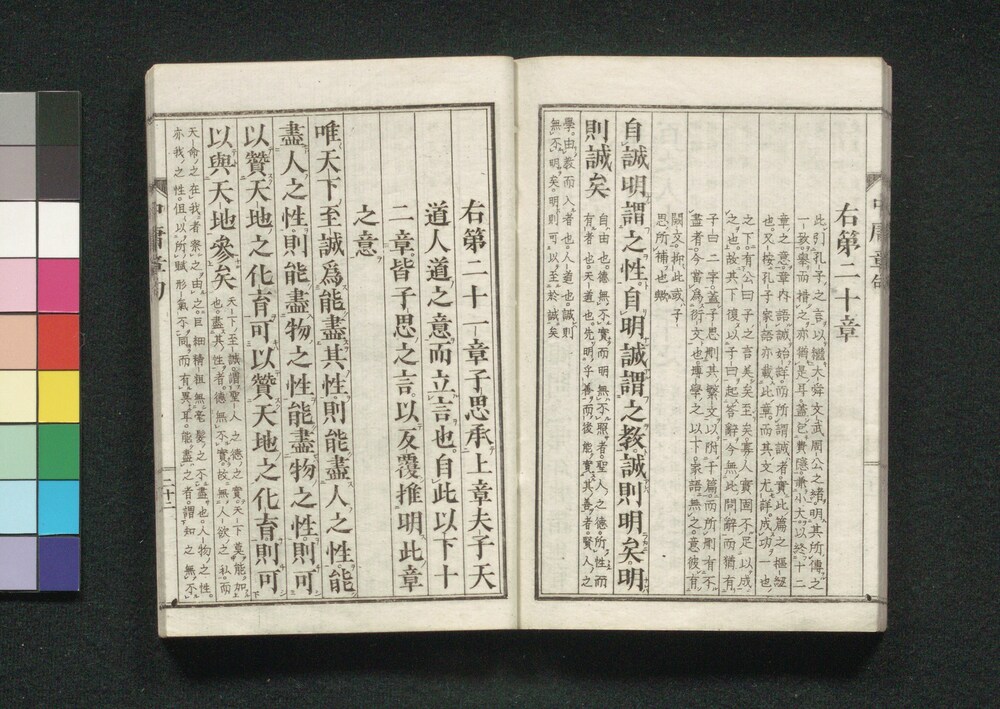 中庸章句
右第二十章
此引孔子之言以繼大舜文武周公之緒明其所傳之
一致舉而措之亦猶是耳蓋包費隱兼小大以終十二
章之意章內語誠始詳而所謂誠者實此篇之樞紐
也又按孔子家語亦載此章而其文尤詳成功一也
之下有公曰子之言美矣至矣寡人實固不足以成
之也故其下復以子曰起答辭今無此問辭而猶有
子曰二字蓋子思刪其繁文以附于篇而所刪有不
盡者今當爲衍文也博學之以下家語無之意彼有
闕文抑此或子
思所補也歟
自誠明謂之性自明誠謂之教誠則明矣明
則誠矣
自由也德無不實而明無不照者聖人之德所性而
有者也天道也先明乎善而後能實其善者賢人之
學由教而入者也人道也誠則
無不明矣明則可以至於誠矣
右第二十一章子思承上章夫子天
道人道之意而立言也自此以下十
二章皆子思之言以反覆推明此章
之意
唯天下至誠爲能盡其性則能盡人之性能
盡人之性則能盡物之性能盡物之性則可
以贊天地之化育可以贊天地之化育則可
以與天地參矣
天下至誠謂聖人之德之實天下莫能加
也盡其性者德無不實故無人欲之私而
天命之在我者察之由之巨細精粗無毫髮之不盡也人物之性
亦我之性但以所賦形氣不同而有異耳能盡之者謂知之無不
中庸章句
二十二